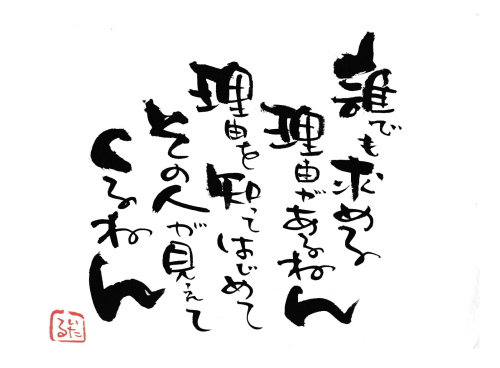 誰でも求める
理由があるねん
理由を知ってはじめて
その人が見えて
くるねん